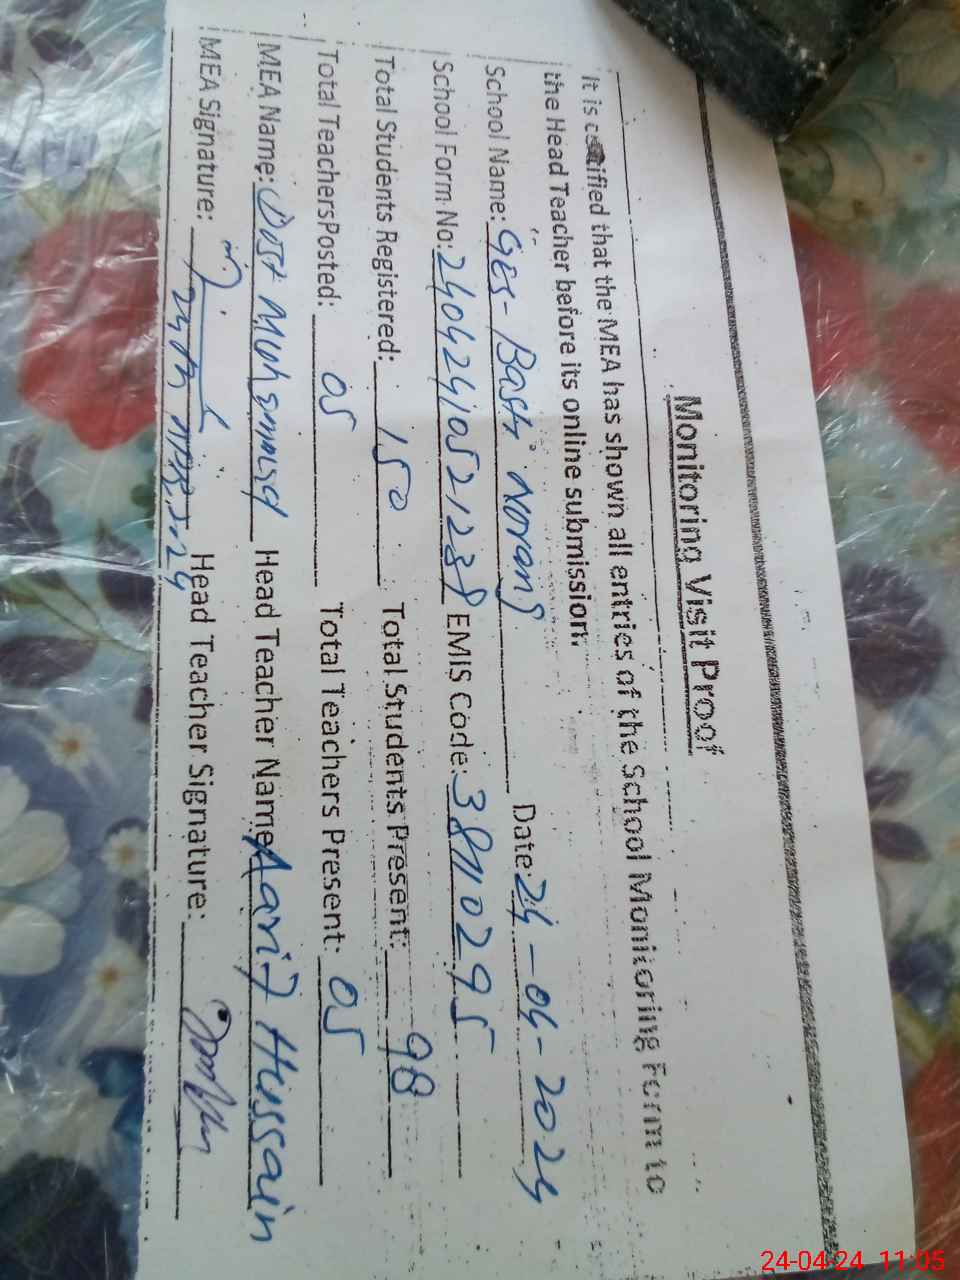 Monitoring Visit Proof
It is certified that the MEA has shown all entries of the School Monitoring Form to
the Head Teacher before its online submission.
School Name: GES- Basti Norang Date: 24-04-2024
School Form No: 2404241052123 EMIS Code: 38110295
Total Students Registered: 150 Total Students Present: 98
Total TeachersPosted: 05 Total Teachers Present: 05
MEA Name: Dost Muhammad Head Teacher Name Aarif Hussain
MEA Signature: Head Teacher Signature:
24-04-24 11:05